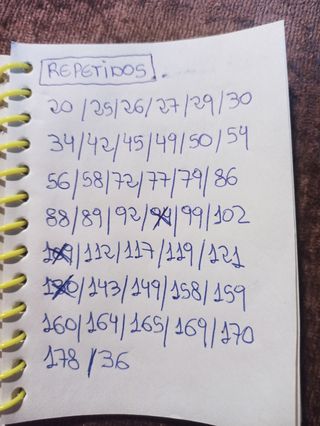 REPETIDOS.
20 / 25 / 26 / 27 / 29 / 30
34 / 42 / 45 / 49 / 50 / 54
56 / 58 / 72 / 77 / 79 / 86
88 / 89 / 92 / 94 / 99 / 102
/ 112 / 117 / 119 / 121
/ 143 / 149 / 158 / 159
160 / 164 / 165 / 169 / 170
178 / 36